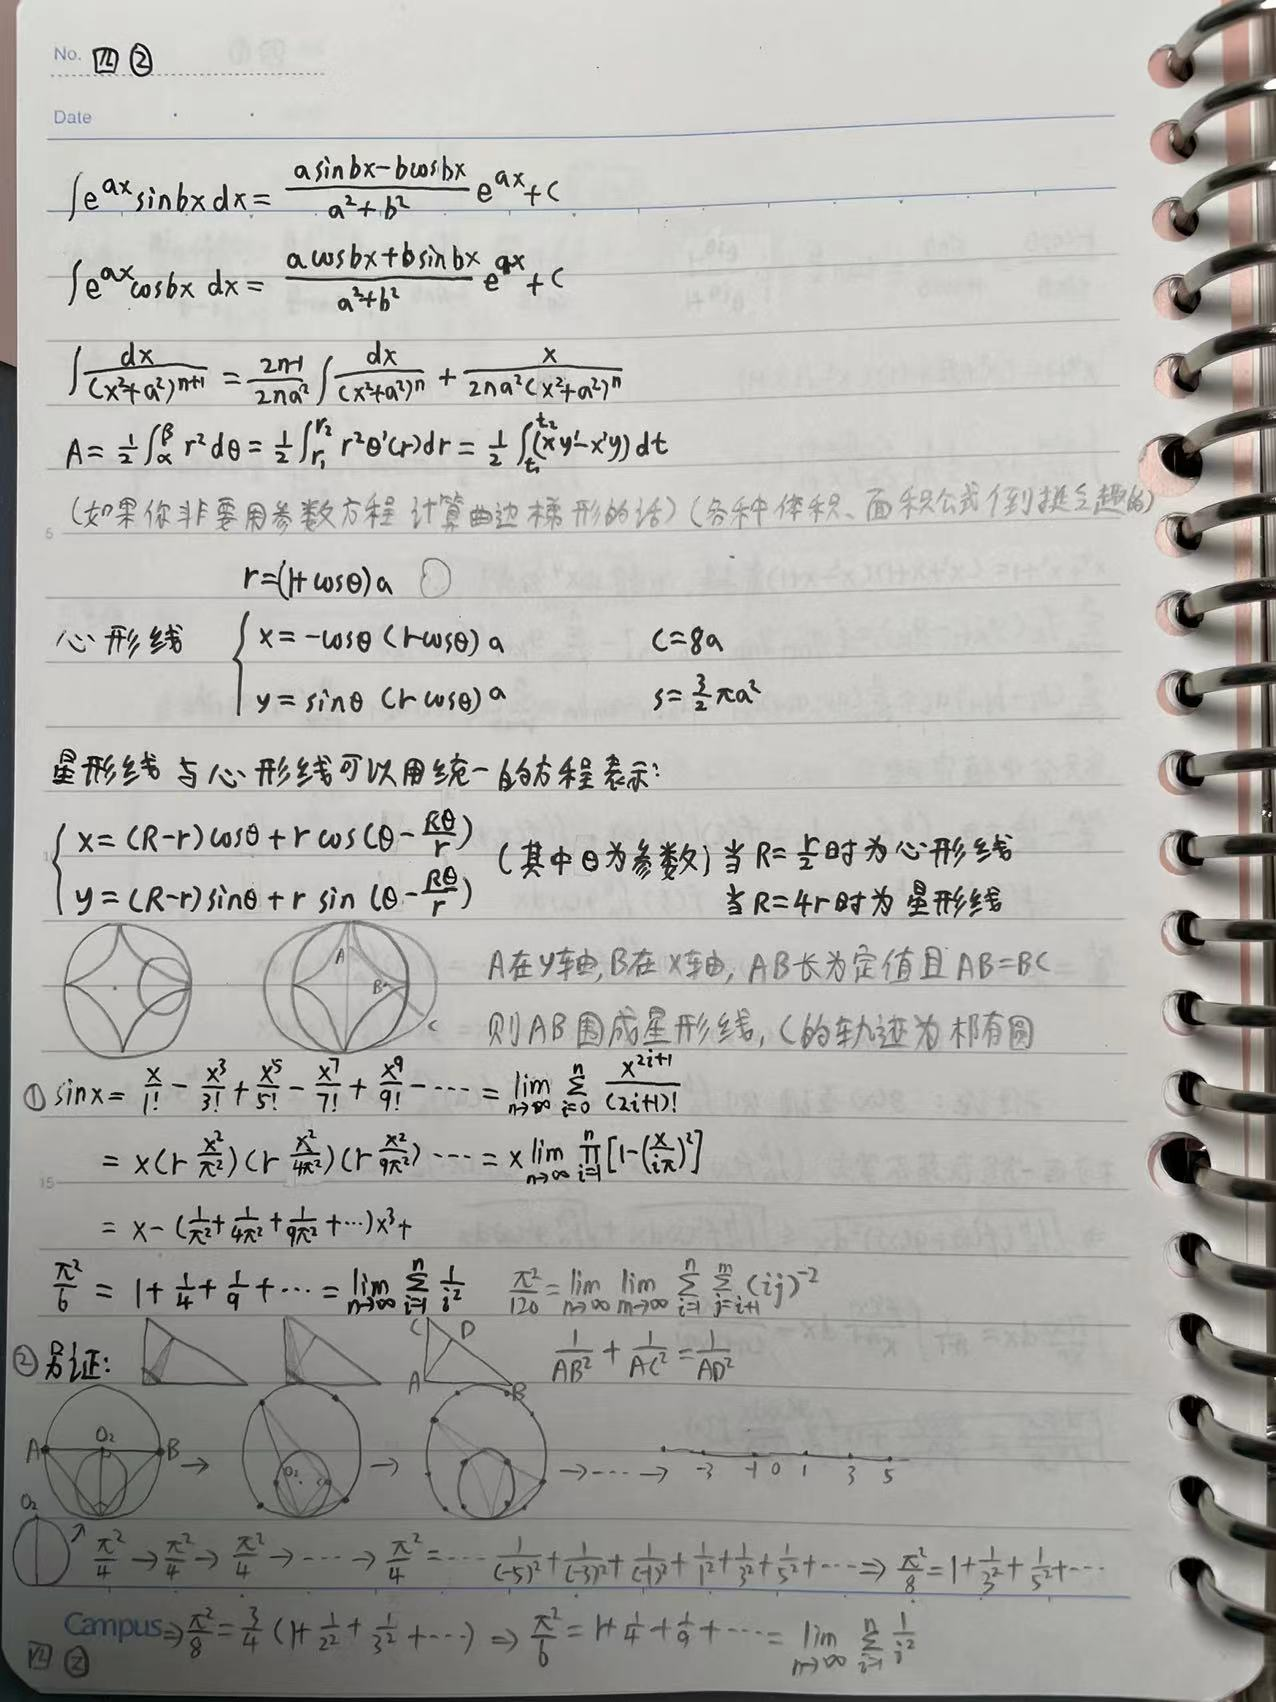 No. 四 ②
Date
∫e^{ax} sinbx dx = \frac{a sinbx - b cosbx}{a²+b²} e^{ax} + C
∫e^{ax} cosbx dx = \frac{a cosbx + b sinbx}{a²+b²} e^{ax} + C
∫\frac{dx}{(x²+a²)^{n+1}} = \frac{2n-1}{2na²} ∫\frac{dx}{(x²+a²)^n} + \frac{x}{2na²(x²+a²)^n}
A = \frac{1}{2}∫_α^β r²dθ = \frac{1}{2}∫_{r_1}^{r_2} r²θ'(r)dr = \frac{1}{2}∫_{t_1}^{t_2}(xy'-x'y)dt
(如果你非要用参数方程计算曲边梯形的话)(各种体积、面积公式倒挺乏趣的)
r=(1+cosθ)a
心形线 { x = -cosθ (1-cosθ) a C=8a
y = sinθ (1-cosθ) a S=\frac{3}{2}πa²
星形线与心形线可以用统一的方程表示:
{ x = (R-r)cosθ + r cos(θ-\frac{Rθ}{r}) (其中θ为参数) 当R=\frac{r}{2}时为心形线
y = (R-r)sinθ + r sin(θ-\frac{Rθ}{r}) 当R=4r时为星形线
A B C
A在y轴,B在x轴,AB长为定值且AB=BC
则AB围成星形线,C的轨迹为椭圆
① sinx = \frac{x}{1!} - \frac{x³}{3!} + \frac{x⁵}{5!} - \frac{x⁷}{7!} + \frac{x⁹}{9!} - ⋯⋯ = \lim_{n→∞} \sum_{i=0}^{n} \frac{x^{2i+1}}{(2i+1)!}
= x(1-\frac{x²}{π²})(1-\frac{x²}{4π²})(1-\frac{x²}{9π²}) ⋯⋯ = x \lim_{n→∞} \prod_{i=1}^{n} [1-(\frac{x}{iπ})²]
= x - (\frac{1}{π²}+\frac{1}{4π²}+\frac{1}{9π²}+⋯)x³+
\frac{π²}{6} = 1+\frac{1}{4}+\frac{1}{9}+⋯ = \lim_{n→∞} \sum_{i=1}^{n} \frac{1}{i²} \frac{π²}{120} = \lim_{n→∞} \lim_{m→∞} \sum_{i=1}^{n} \sum_{j=i+1}^{m} (ij)^{-2}
② 另证: C D A B \frac{1}{AB²} + \frac{1}{AC²} = \frac{1}{AD²}
A O₂ B → O₂ C → → ⋯⋯ → -3 -1 0 1 3 5
O₂ ↗ \frac{π²}{4} → \frac{π²}{4} → \frac{π²}{4} → ⋯⋯ → \frac{π²}{4} = ⋯⋯ \frac{1}{(-5)²}+\frac{1}{(-3)²}+\frac{1}{(-1)²}+\frac{1}{1²}+\frac{1}{3²}+\frac{1}{5²}+⋯⋯ ⇒ \frac{π²}{8} = 1+\frac{1}{3²}+\frac{1}{5²}+⋯
Campus ⇒ \frac{π²}{8} = \frac{3}{4}(1+\frac{1}{2²}+\frac{1}{3²}+⋯) ⇒ \frac{π²}{6} = 1+\frac{1}{4}+\frac{1}{9}+⋯ = \lim_{n→∞} \sum_{i=1}^{n} \frac{1}{i²}
四 ②